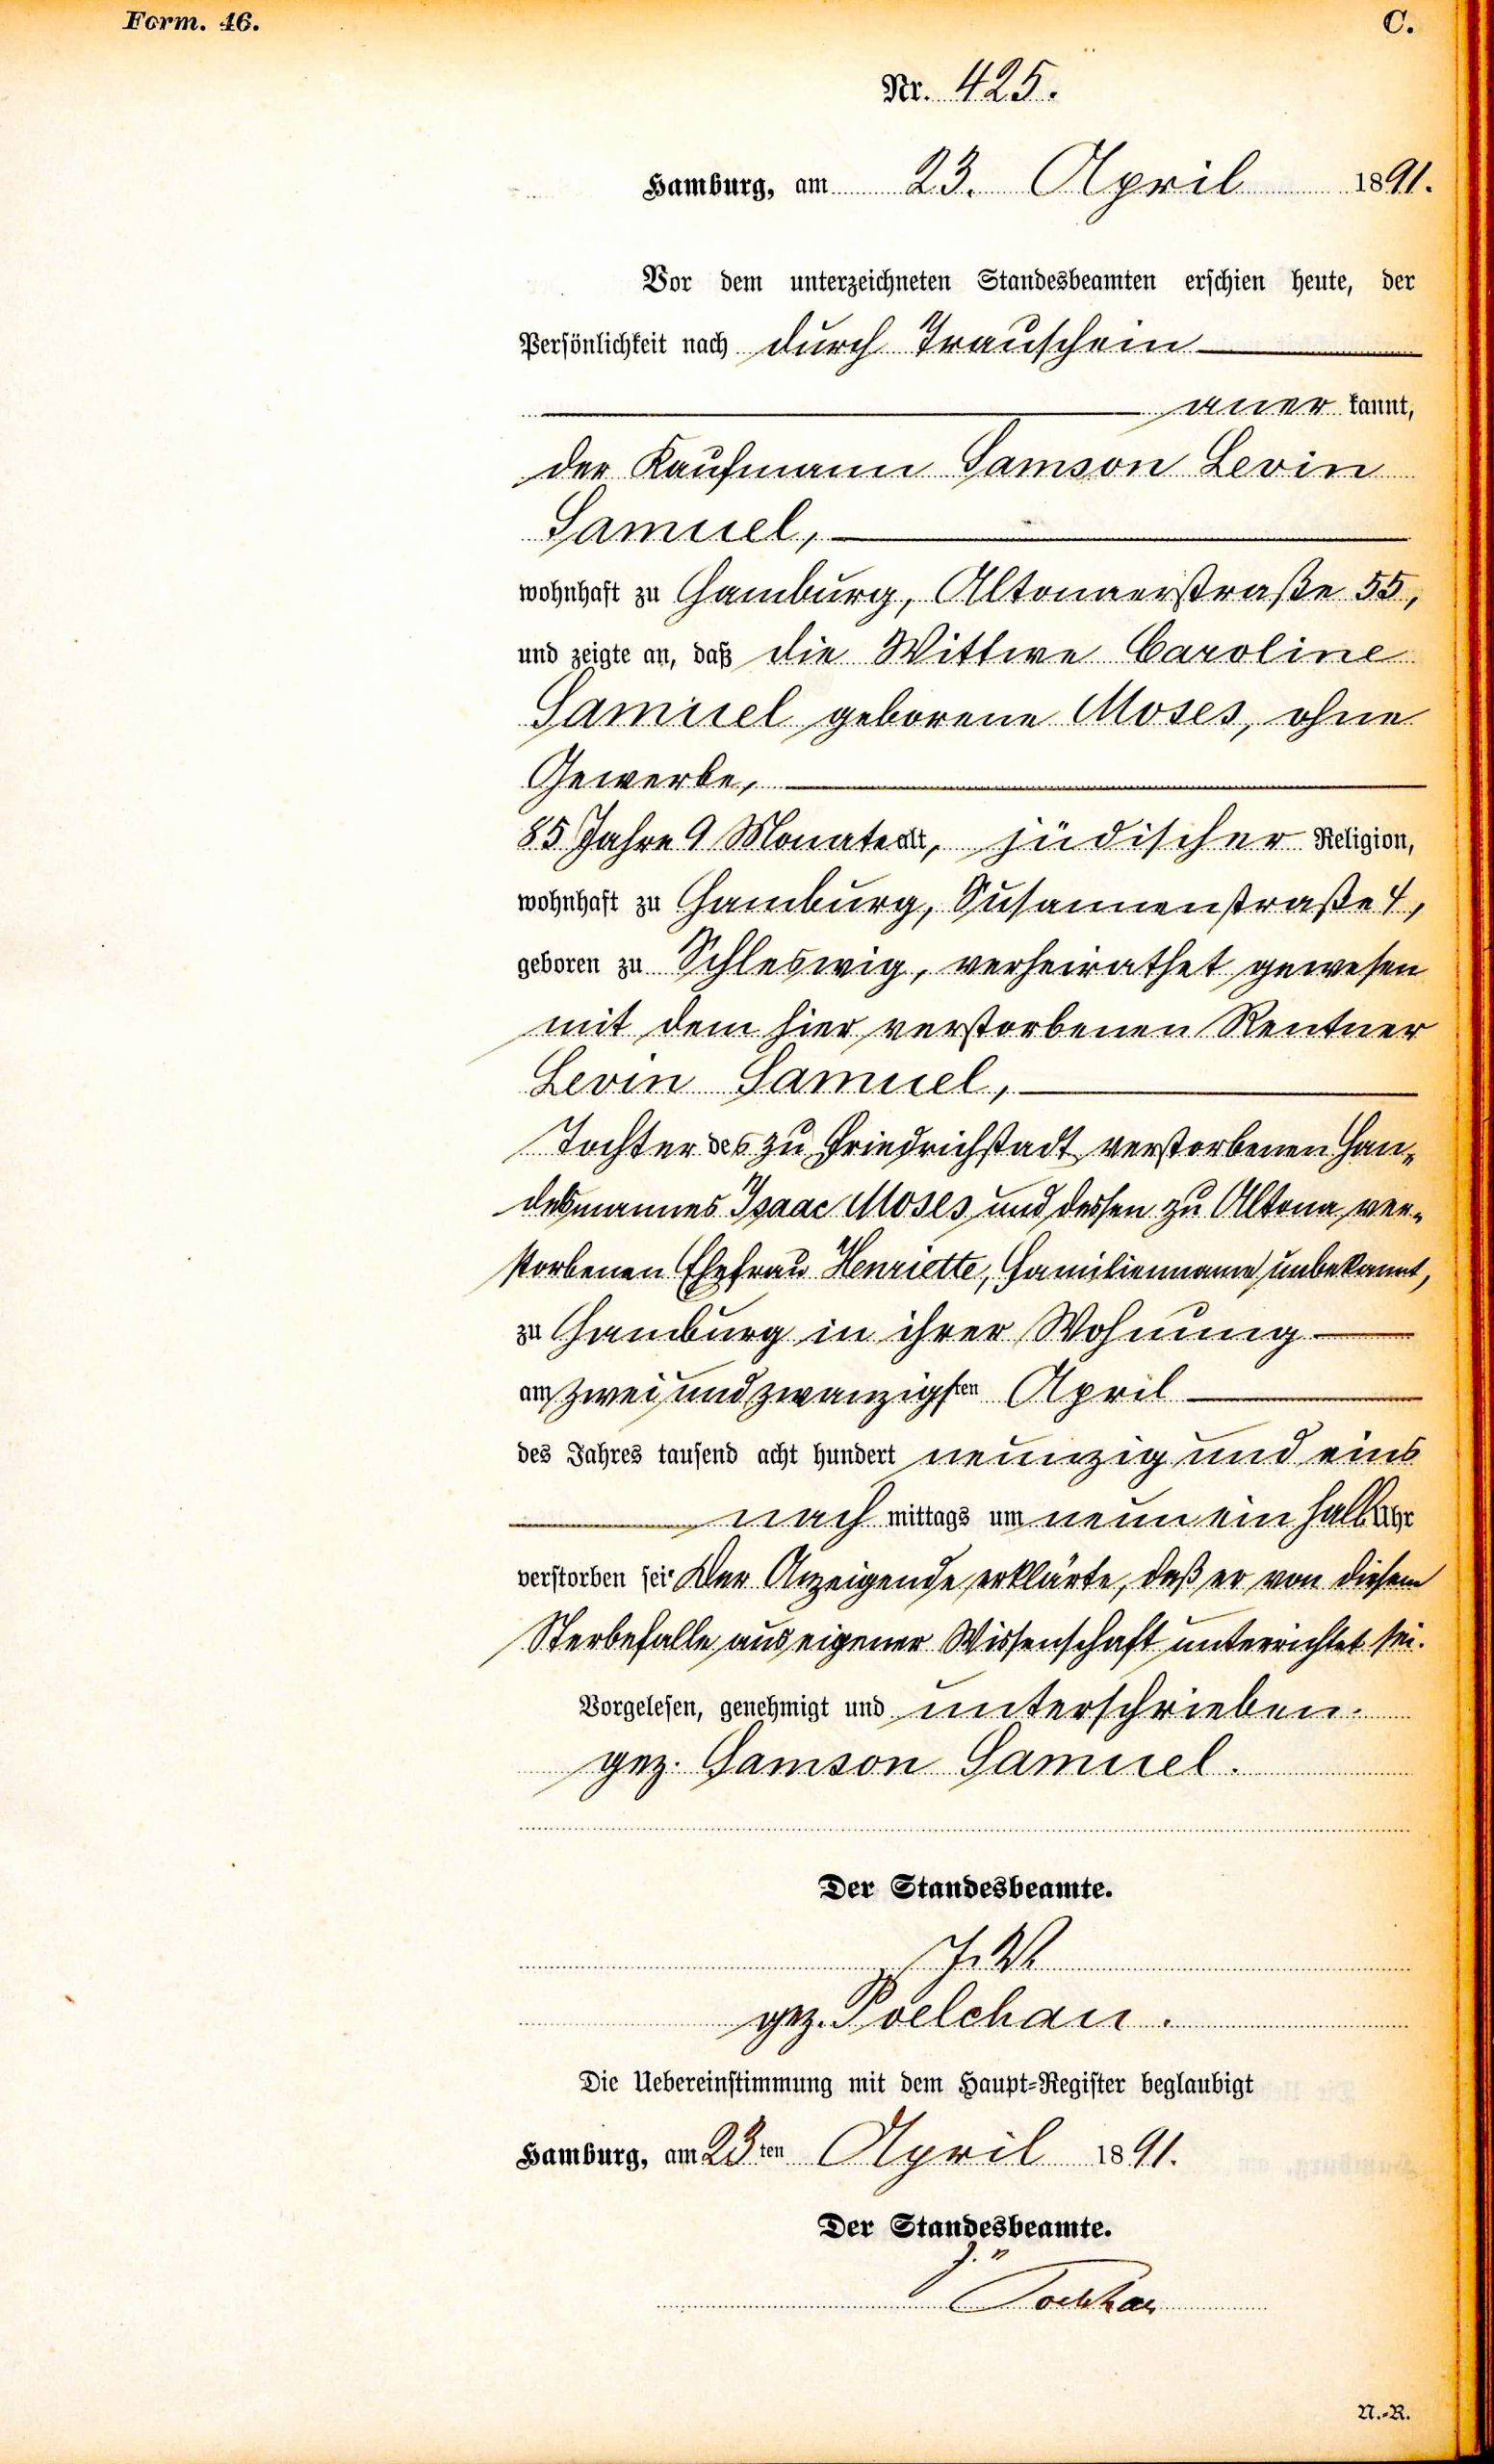 Form. 46.
C.
Nr. 425.
Hamburg, am 23. April 1891.
Vor dem unterzeichneten Standesbeamten erschien heute, der
Persönlichkeit nach durch Trauschein
aner kannt,
der Kaufmann Samson Levin
Samuel,
wohnhaft zu Hamburg, Altonaerstraße 55,
und zeigte an, daß die Wittwe Caroline
Samuel geborene Moses, ohne
Gewerbe,
85 Jahre 9 Monate alt, jüdischer Religion,
wohnhaft zu Hamburg, Susannenstraße 4,
geboren zu Schleswig, verheirathet gewesen
mit dem hier verstorbenen Rentner
Levin Samuel,
Tochter des zu Friedrichstadt verstorbenen Han-
delsmannes Isaac Moses und dessen zu Altona ver-
storbenen Ehefrau Henriette, Familienname unbekannt,
zu Hamburg in ihrer Wohnung
am zwei und zwanzigsten April
des Jahres tausend acht hundert neunzig und eins
nach mittags um neun ein halb Uhr
verstorben sei. Der Anzeigende erklärte, daß er von diesem
Sterbefalle aus eigener Wissenschaft unterrichtet sei.
Vorgelesen, genehmigt und unterschrieben.
gez. Samson Samuel.
Der Standesbeamte.
J. V.
gez. Poelchau.
Die Uebereinstimmung mit dem Haupt-Register beglaubigt
Hamburg, am 23ten April 1891.
Der Standesbeamte.
J. V.
Poelchau
N.-R.